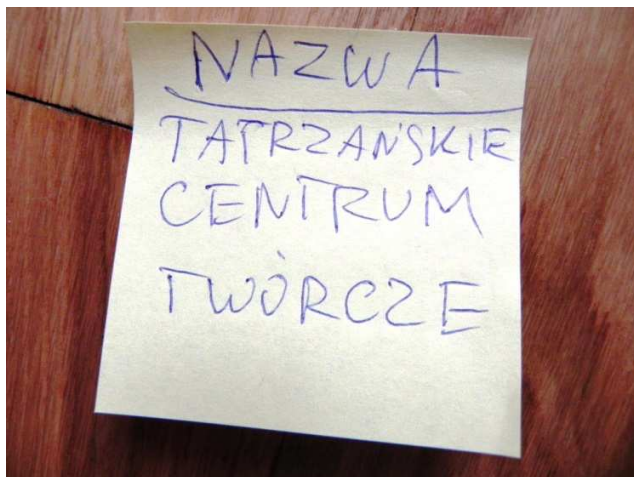 NAZWA
TATRZAŃSKIE
CENTRUM
TWÓRCZE